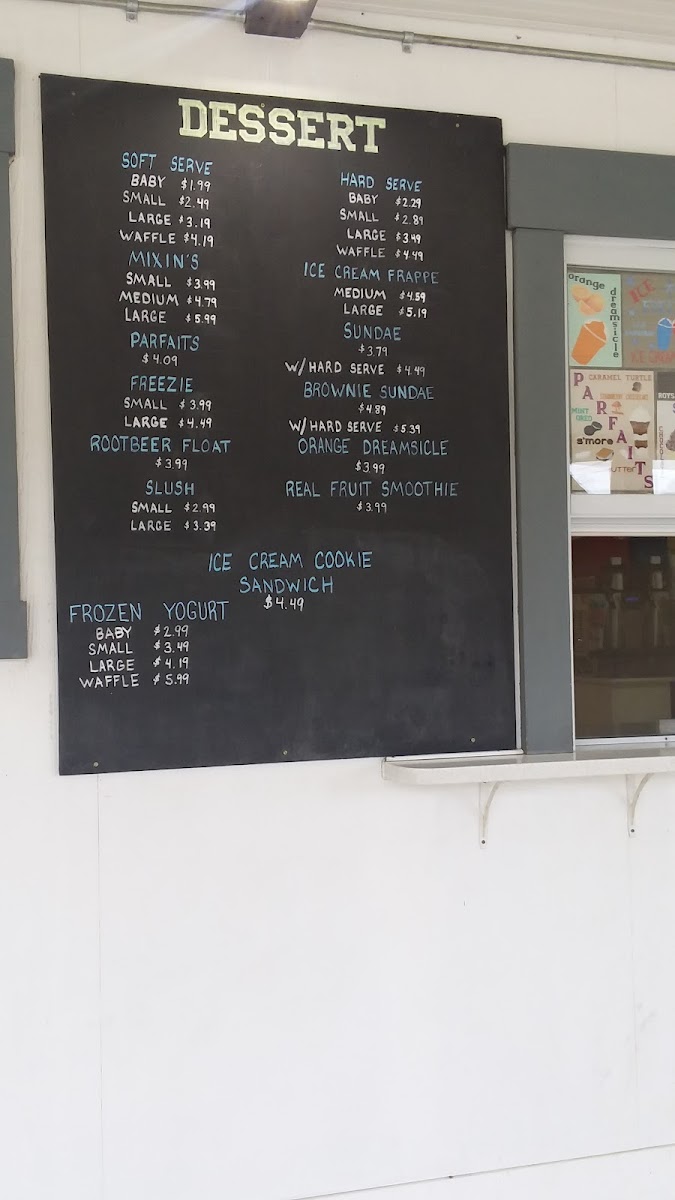 DESSERT
SOFT SERVE
BABY $1.99
SMALL $2.49
LARGE $3.19
WAFFLE $4.19
MIXIN'S
SMALL $3.99
MEDIUM $4.79
LARGE $5.99
PARFAITS
$4.09
FREEZIE
SMALL $3.99
LARGE $4.49
ROOTBEER FLOAT
$3.99
SLUSH
SMALL $2.99
LARGE $3.39
HARD SERVE
BABY $2.29
SMALL $2.89
LARGE $3.49
WAFFLE $4.49
ICE CREAM FRAPPE
MEDIUM $4.59
LARGE $5.19
SUNDAE
$3.79
W/HARD SERVE $4.49
BROWNIE SUNDAE
$4.89
W/HARD SERVE $5.39
ORANGE DREAMSICLE
$3.99
REAL FRUIT SMOOTHIE
$3.99
ICE CREAM COOKIE
SANDWICH
$4.49
FROZEN YOGURT
BABY $2.99
SMALL $3.49
LARGE $4.19
WAFFLE $5.99
orange
dreamsicle
ICE
PARFAITS
CARAMEL TURTLE
MINT
OREO
s'more